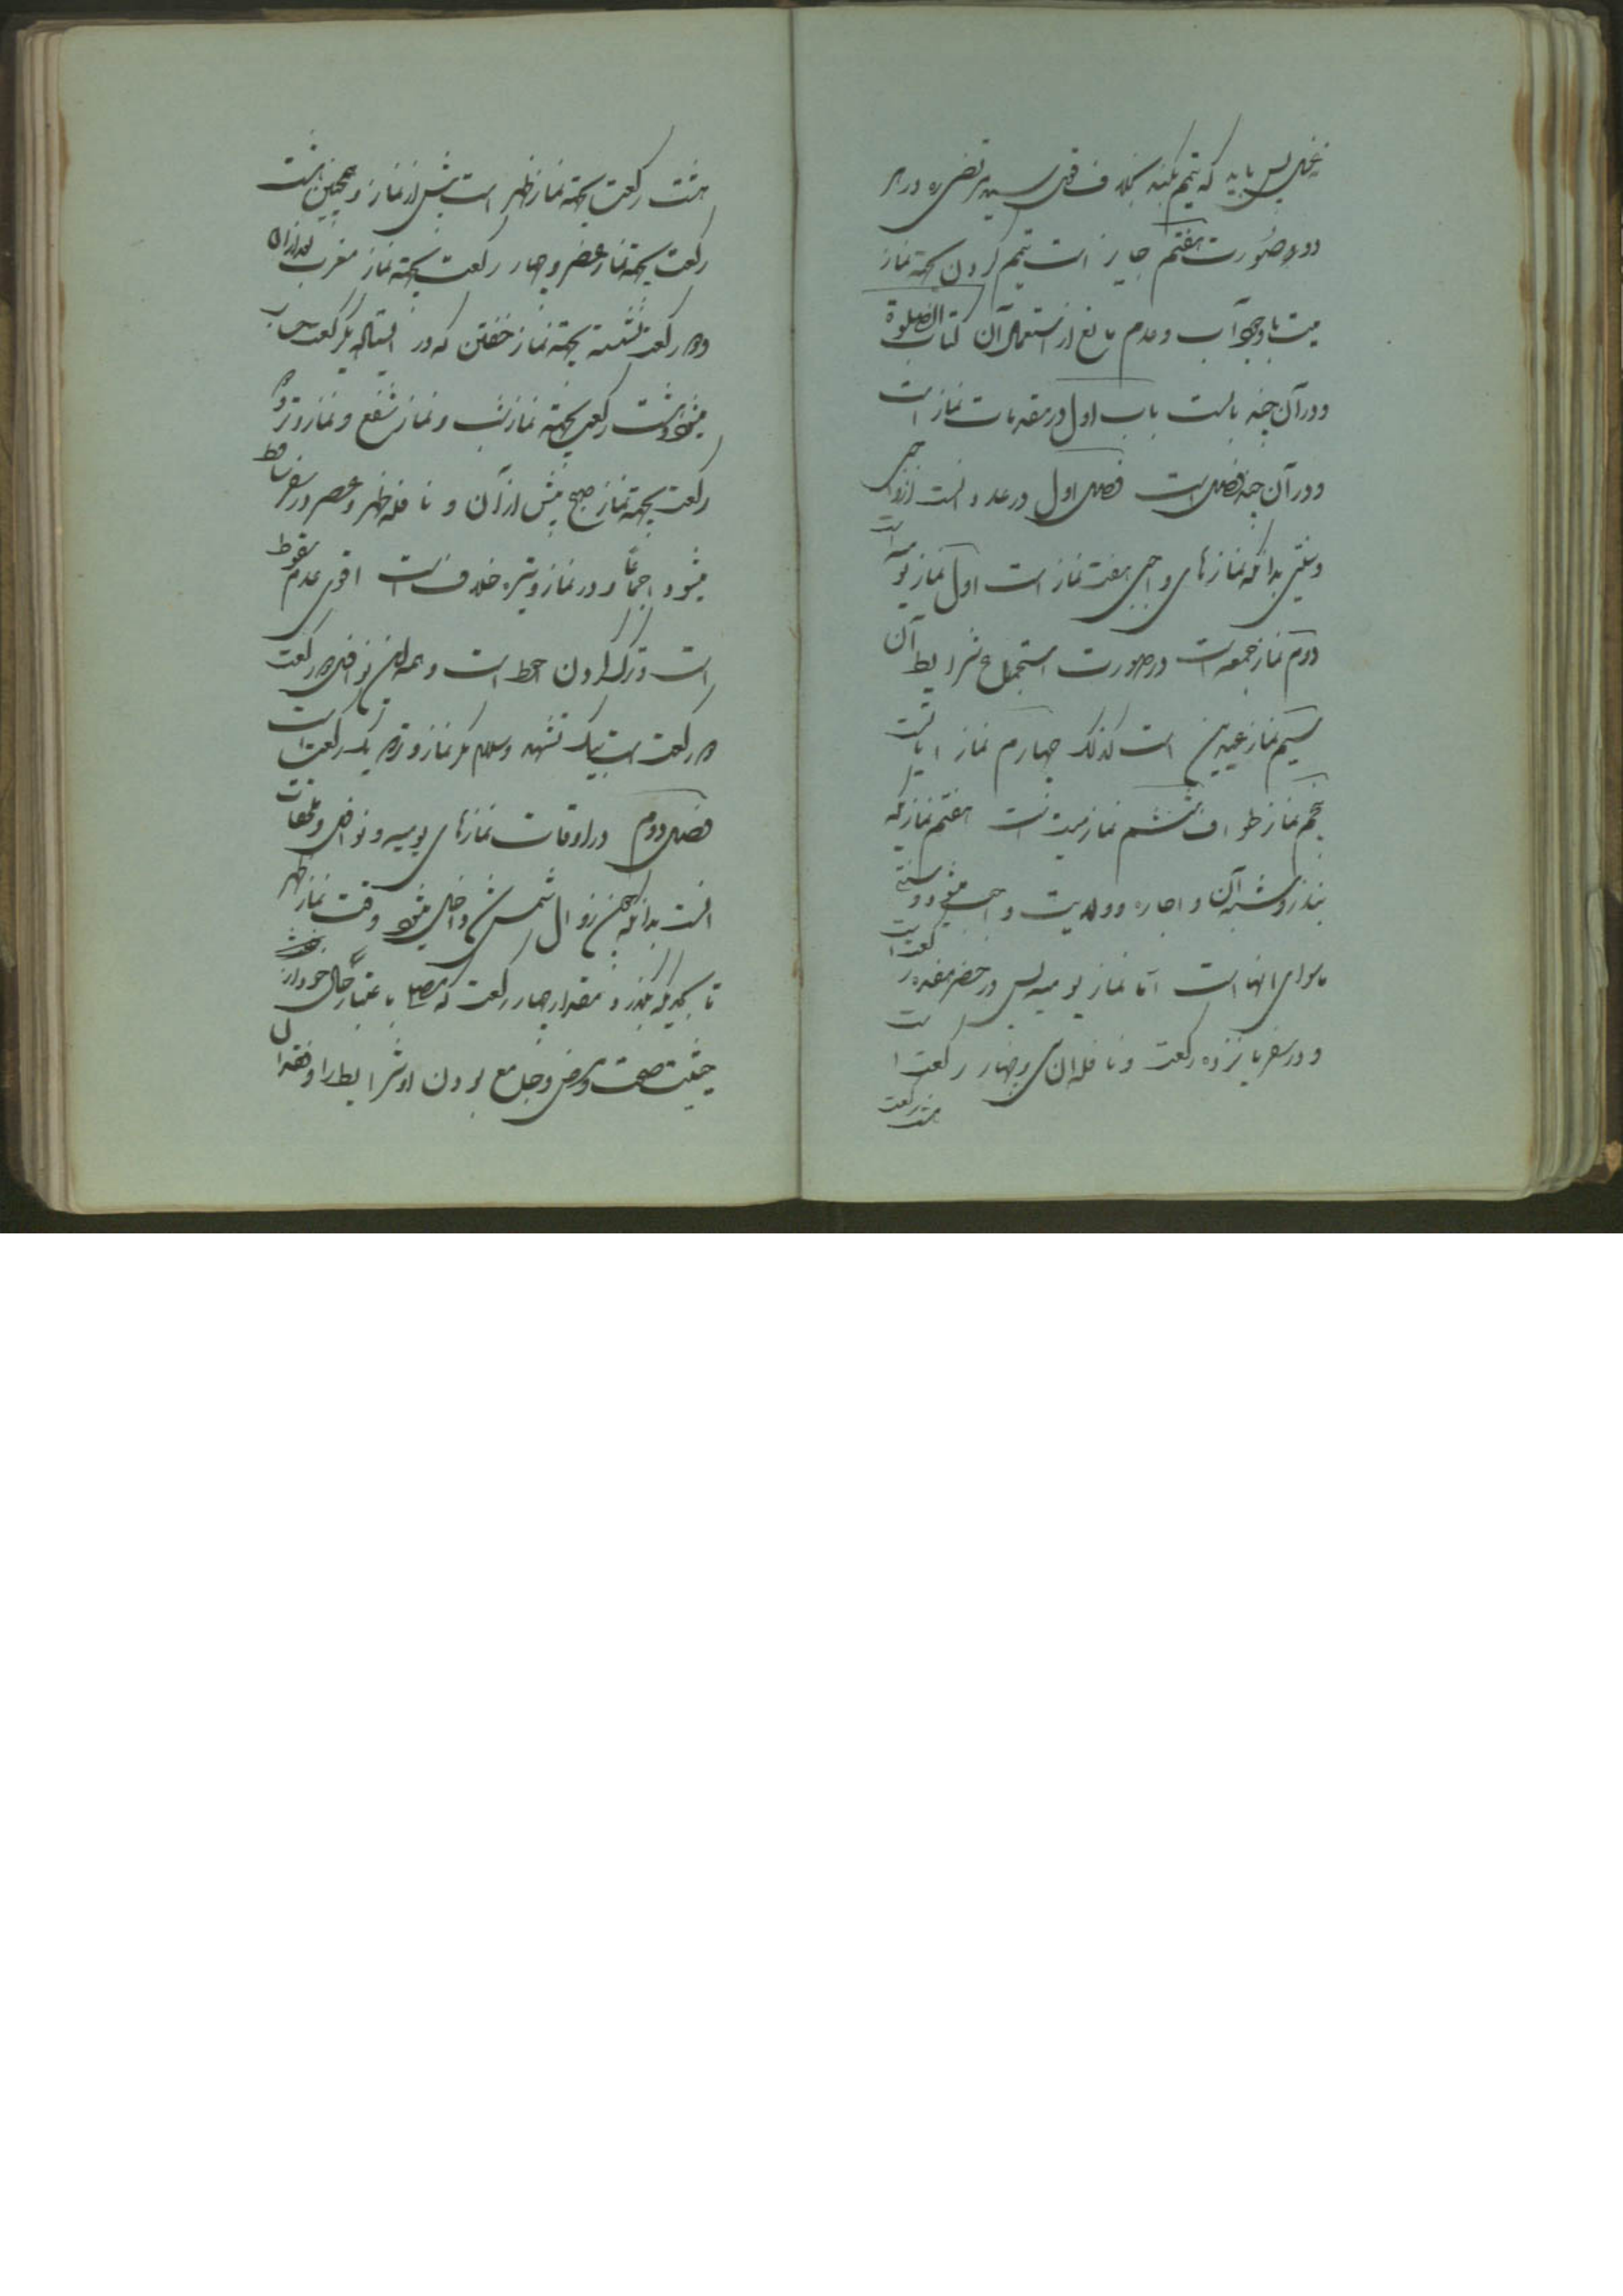 غسل پس باید که تیمم بکند بخلاف قول سید مرتضی ره در هر
دو صورت هفتم جایز است تیمم کردن بجهة نماز
میت با وجود آب و عدم مانع از استعمال آن کتاب الصلوة
و در آن چند بابست باب اول در مقدمات نماز است
و در آن چند فصل است فصل اول در عدد است از واجبی
و سنتی بدانکه نمازهای واجبی هفت نماز است اول نماز یومیه است
دوم نماز جمعه است در صورت استجماع شرایط آن
سیم نماز عیدین است کذلک چهارم نماز آیاتست
پنجم نماز طواف ششم نماز میت است هفتم نماز که
بنذر و شبه آن و اجاره و ولایت واجب میشود و سنتی
ماسوای انها است اما نماز یومیه پس در حضر هفده رکعت است
و در سفر یازده رکعت و نافله آن سی و چهار رکعت است
هشت رکعت
هشت رکعت بجهة نماز ظهر است پیش از نماز و همچنین هشت
رکعت بجهة نماز عصر و چهار رکعت بجهة نماز مغرب بعد از آن
و دو رکعت نشسته بجهة نماز خفتن که دو رکعت ایستاده بیک رکعت حساب
میشود و هشت رکعت بجهة نماز شب و نماز شفع و نماز وتر و دو
رکعت بجهة نماز صبح پیش از آن و نافله ظهر و عصر در سفر ساقط
میشود اجماعاً و در نماز وتیره خلاف است اقوی عدم سقوط
است و ترک کردن احوط است و همه این نوافل دو رکعت
دو رکعت است بیک تشهد و سلام مگر نماز وتر که یک رکعت است
فصل دوم در اوقات نمازهای یومیه و نوافل و
است بدانکه چون زوال شمس شد داخل میشود وقت نماز ظهر
تا بحدیکه بگذرد مقدار چهار رکعت که مصلی باعتبار حال خود از
حیثیت صحت و مرض و جامع بودن او شرایط را و فقدان